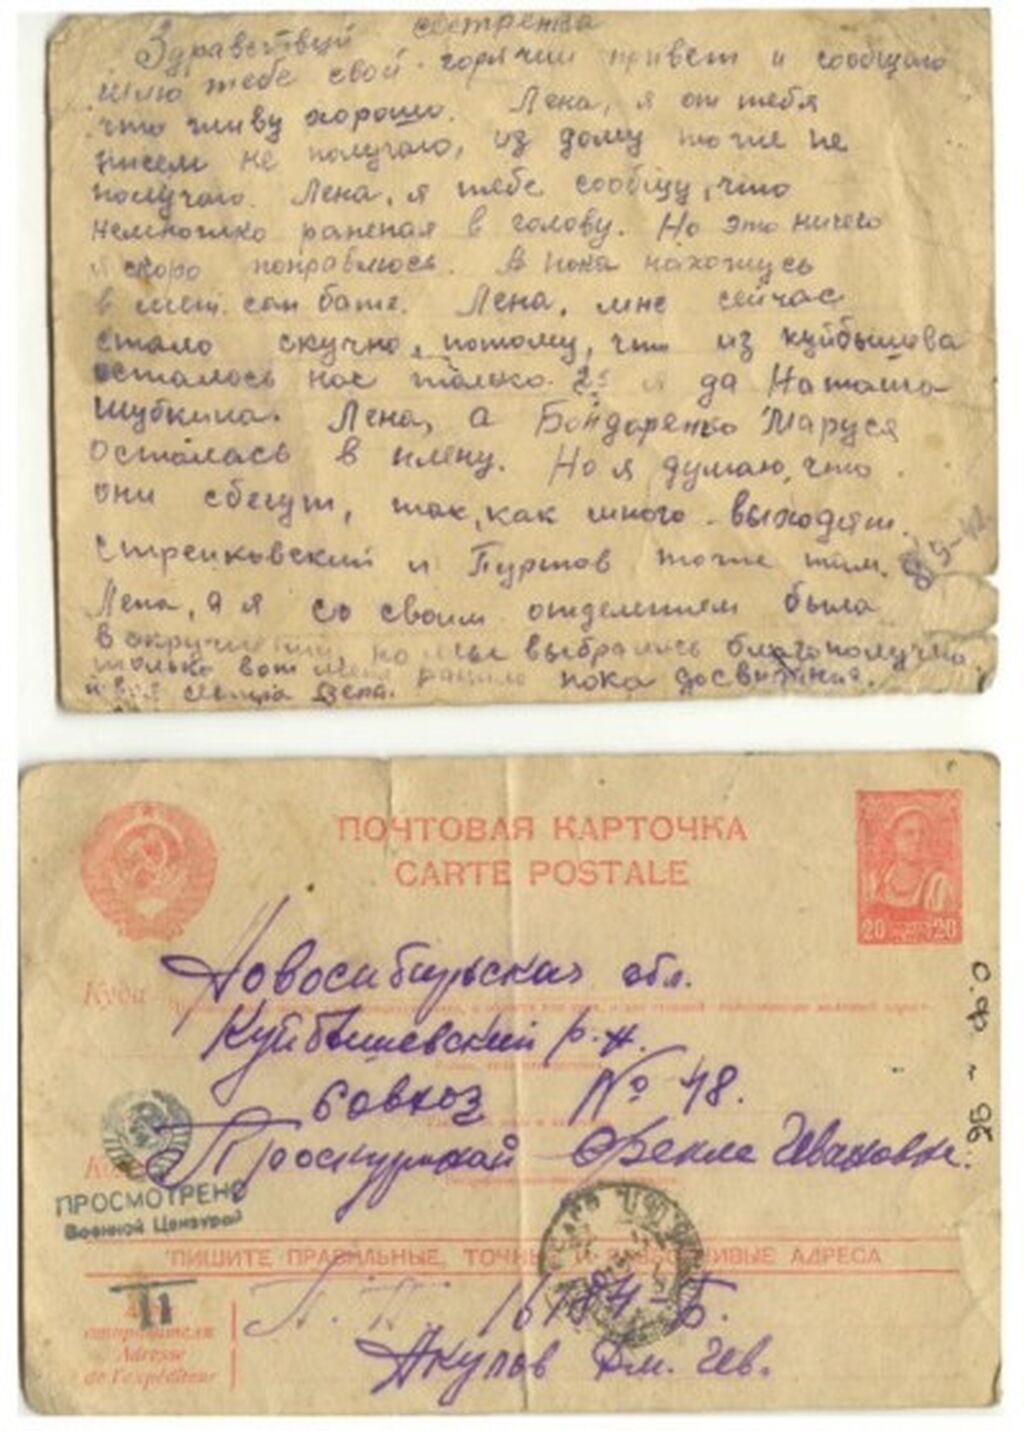 Здравствуй сестренка
шлю тебе свой горячий привет и сообщаю
что живу хорошо. Лена, я от тебя
писем не получаю, из дому тоже не
получаю. Лена, я тебе сообщу, что
немножко раненая в голову. Но это ничего
я скоро поправлюсь. А пока нахожусь
в мед. сан бате. Лена, мне сейчас
стало скучно, потому, что из куйбышова
осталось нас только 2е я да Наташа
Шубкина. Лена, а Бондаренко Маруся
осталась в плену. Но я думаю, что
они сбегут, так, как много выходят.
Стренковский и Пуртов тоже там.
Лена, а я со своим отделением была
в окружении, но мы выбрались благополучно
только вот меня ранило пока досвидания.
твоя сестра
ПОЧТОВАЯ КАРТОЧКА
CARTE POSTALE
20 20
Куда
Новосибирская обл.
Куйбышевский р-н.
Совхоз № 48.
Кому
Проскуряковой Фекле Ивановне.
ПРОСМОТРЕНО
Военной Цензурой
11
ПИШИТЕ ПРАВИЛЬНЫЕ, ТОЧНЫЕ И РАЗБОРЧИВЫЕ АДРЕСА
отправителя
Adresse
de l'expéditeur
Акулов Дм. Ив.